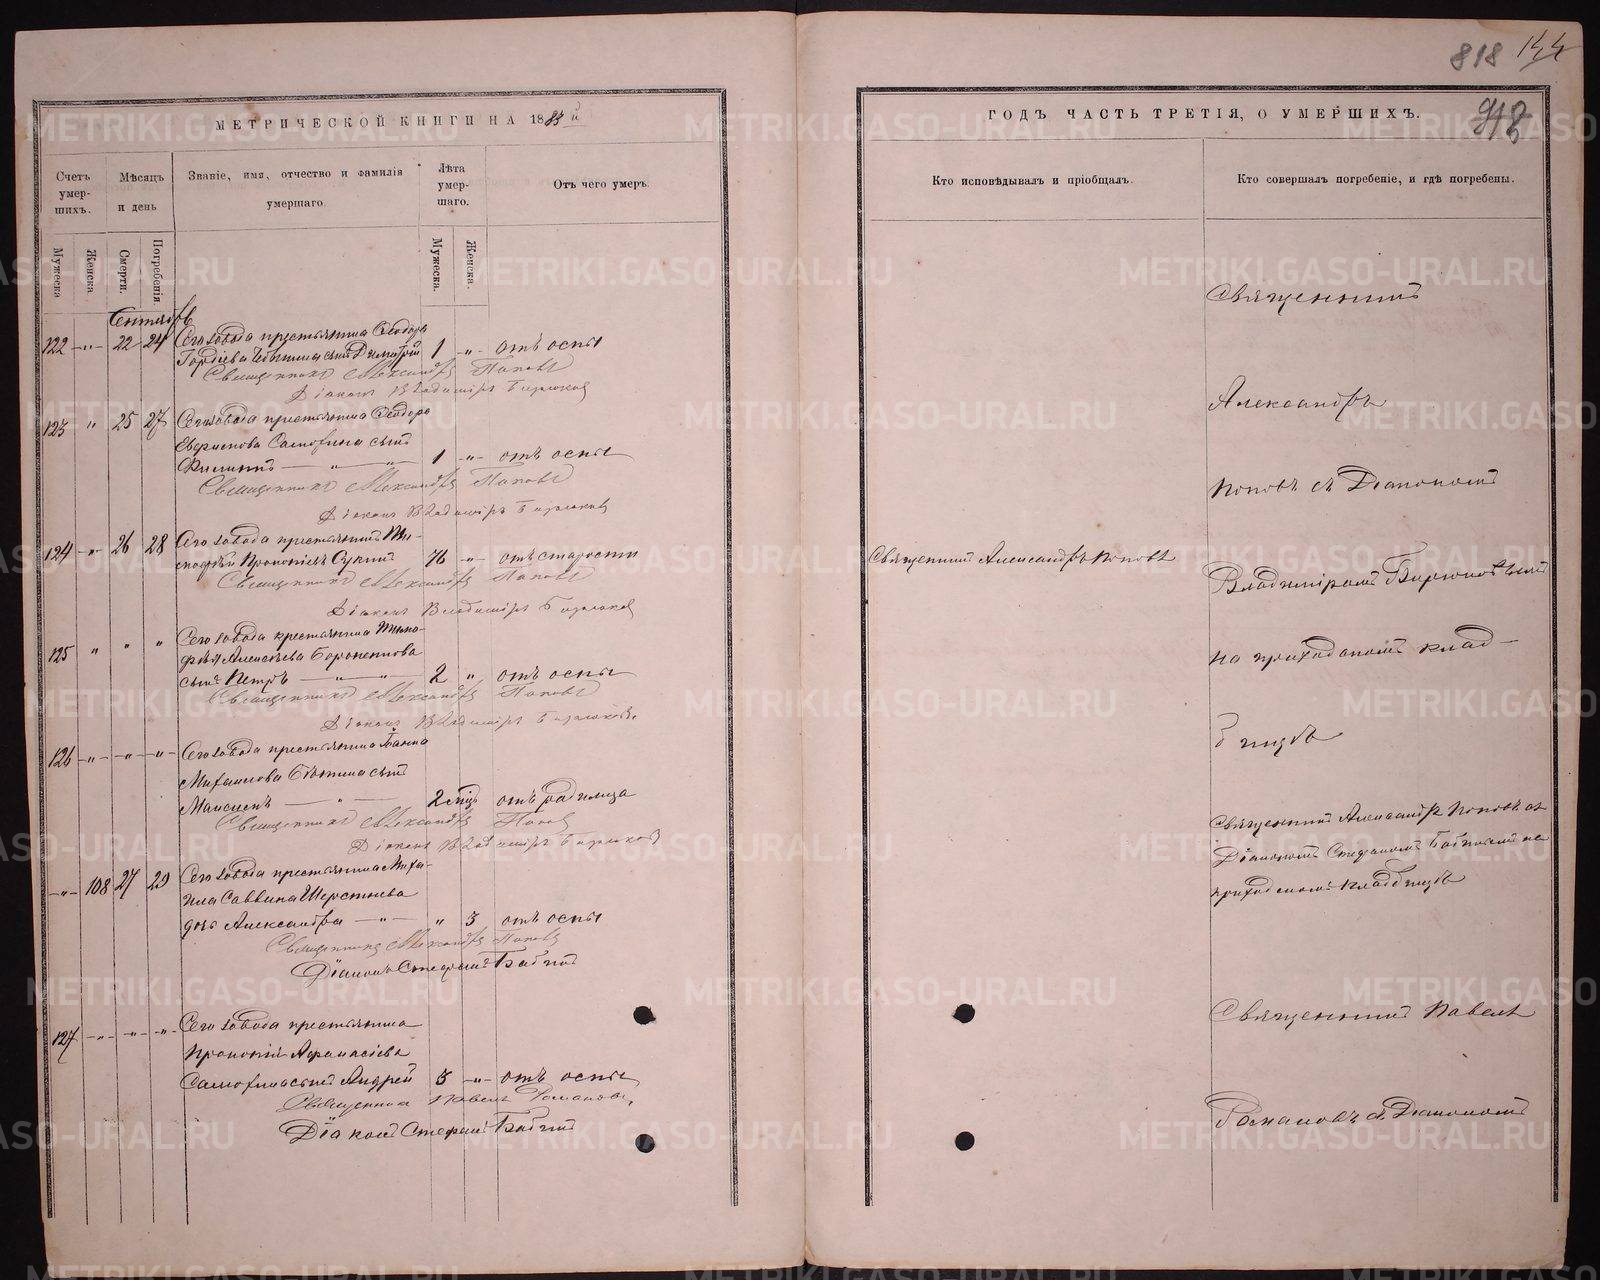 818 144
МЕТРИЧЕСКОЙ КНИГИ НА 1883й
Счетъ умер-шихъ.
Мѣсяцъ и день
Званіе, имя, отчество и фамилія умершаго.
Лѣта умер-шаго.
Отъ чего умеръ.
Мужеска
Женска
Смерти.
Погребенія.
Мужеска.
Женска.
Сентябрь
122 -„- 22 24 Сего завода крестьянина Ѳеодора
Гордіева сынъ Димитрій 1 -„- отъ оспы
Священникъ Александръ Поповъ
Діаконъ Владиміръ Бирюковъ
123 „ 25 27 Сего завода крестьянина Ѳеодора
Самохина сынъ
Филиппъ — „ — „ — 1 -„- отъ оспы
Священникъ Александръ Поповъ
Діаконъ Владиміръ Бирюковъ
124 -„- 26 28 Сего завода крестьянинъ Ти-
мофей Прокопіевъ 76 „ отъ старости
Священникъ Александръ Поповъ
Діаконъ Владиміръ Бирюковъ
125 „ „ „ Сего завода крестьянина Тимо-
фея Алексѣева
сынъ Петръ — „ — „ 2 „ отъ оспы
Священникъ Александръ Поповъ
Діаконъ Владиміръ Бирюковъ
126 -„- -„- -„- Сего завода крестьянина Іоанна
Михаилова сынъ
Максимъ — „ — 2 мѣц отъ родимца
Священникъ Александръ Поповъ
Діаконъ Владиміръ Бирюковъ
-„- 108 27 29 Сего завода крестьянина Миха-
ила Саввина Шерстнева
дочь Александра — „ — „ 3 отъ оспы
Священникъ Александръ Поповъ
Діаконъ Стефанъ Бабинъ
127 -„- -„- -„- Сего завода крестьянина
Прокопія Аѳанасіева
Самохина сынъ Андрей 3 -„- отъ оспы
Священникъ Павелъ
Діаконъ Стефанъ Бабинъ
ГОДЪ ЧАСТЬ ТРЕТІЯ, О УМЕРШИХЪ.
Кто исповѣдывалъ и пріобщалъ.
Кто совершалъ погребеніе, и гдѣ погребены.
Священникъ
Александръ
Поповъ съ Діакономъ
Священникъ Александръ Поповъ
Владиміромъ Бирюковымъ
на приходскомъ клад-
бищѣ
Священникъ Александръ Поповъ съ
Діакономъ Стефаномъ Бабинымъ на
приходскомъ кладбищѣ
Священникъ Павелъ
съ Діакономъ
METRIKI.GASO-URAL.RU